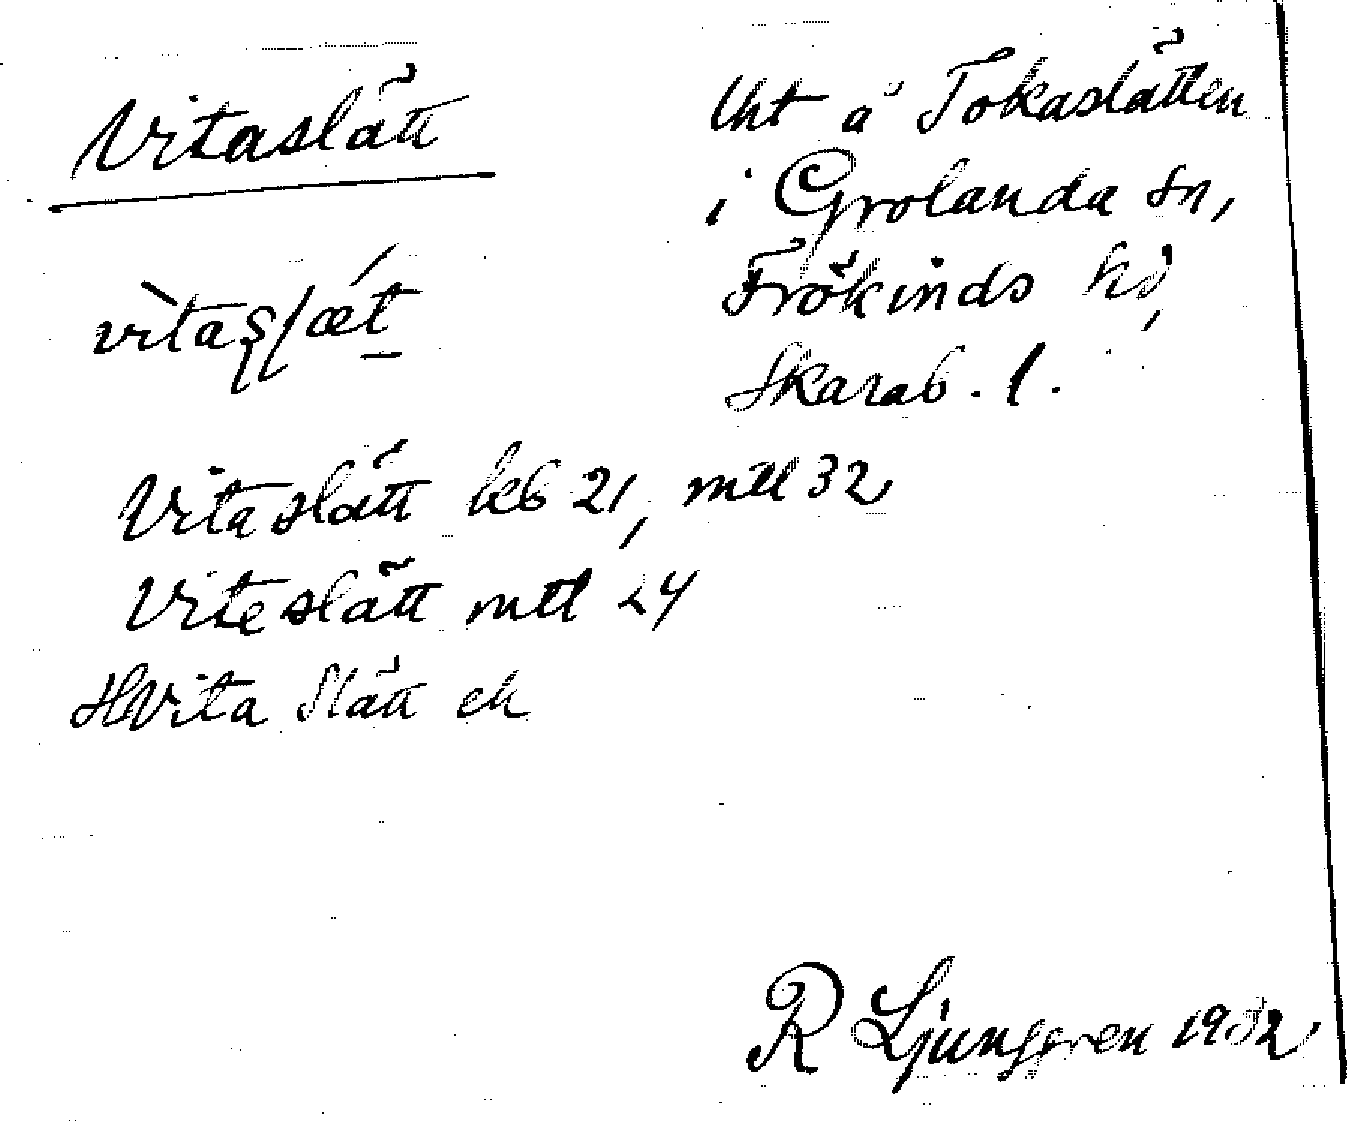 Vitaslätt
vìtaslǽt
Vitaslätt leb 21, mtl 32
Viteslätt mtl 24
Hvita Slätt ek
Uht å Tokaslätten
i Grolanda sn,
Frökinds hd,
Skarab. l.
R Ljunggren 1932